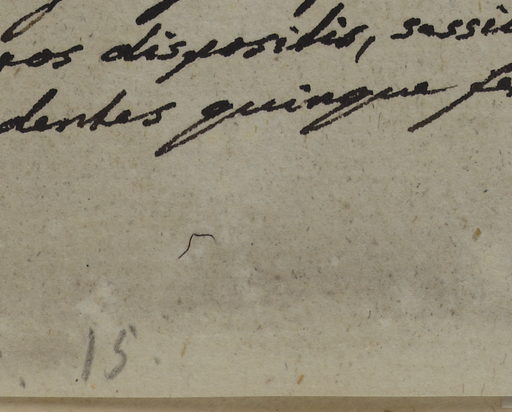 ros dispositis, sessil
dentes quinque fe
15